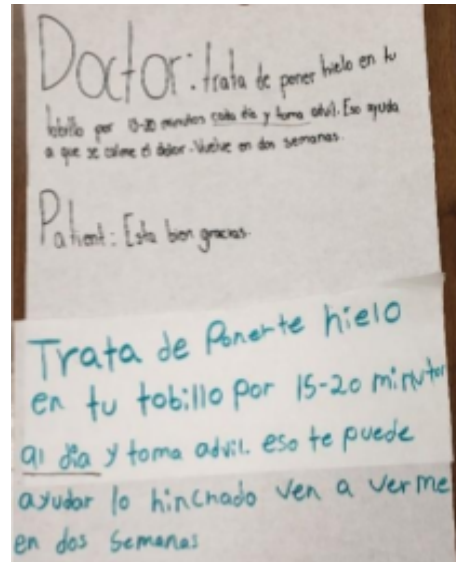 Doctor: trata de poner hielo en tu
tobillo por 15-20 minutos cada día y toma advil. Eso ayuda
a que se calme el dolor. Vuelve en dos semanas.
Patient: Esta bien gracias.
Trata de Ponerte hielo
en tu tobillo por 15-20 minutos
al dia y toma advil. eso te puede
ayudar lo hinchado ven a verme
en dos semanas